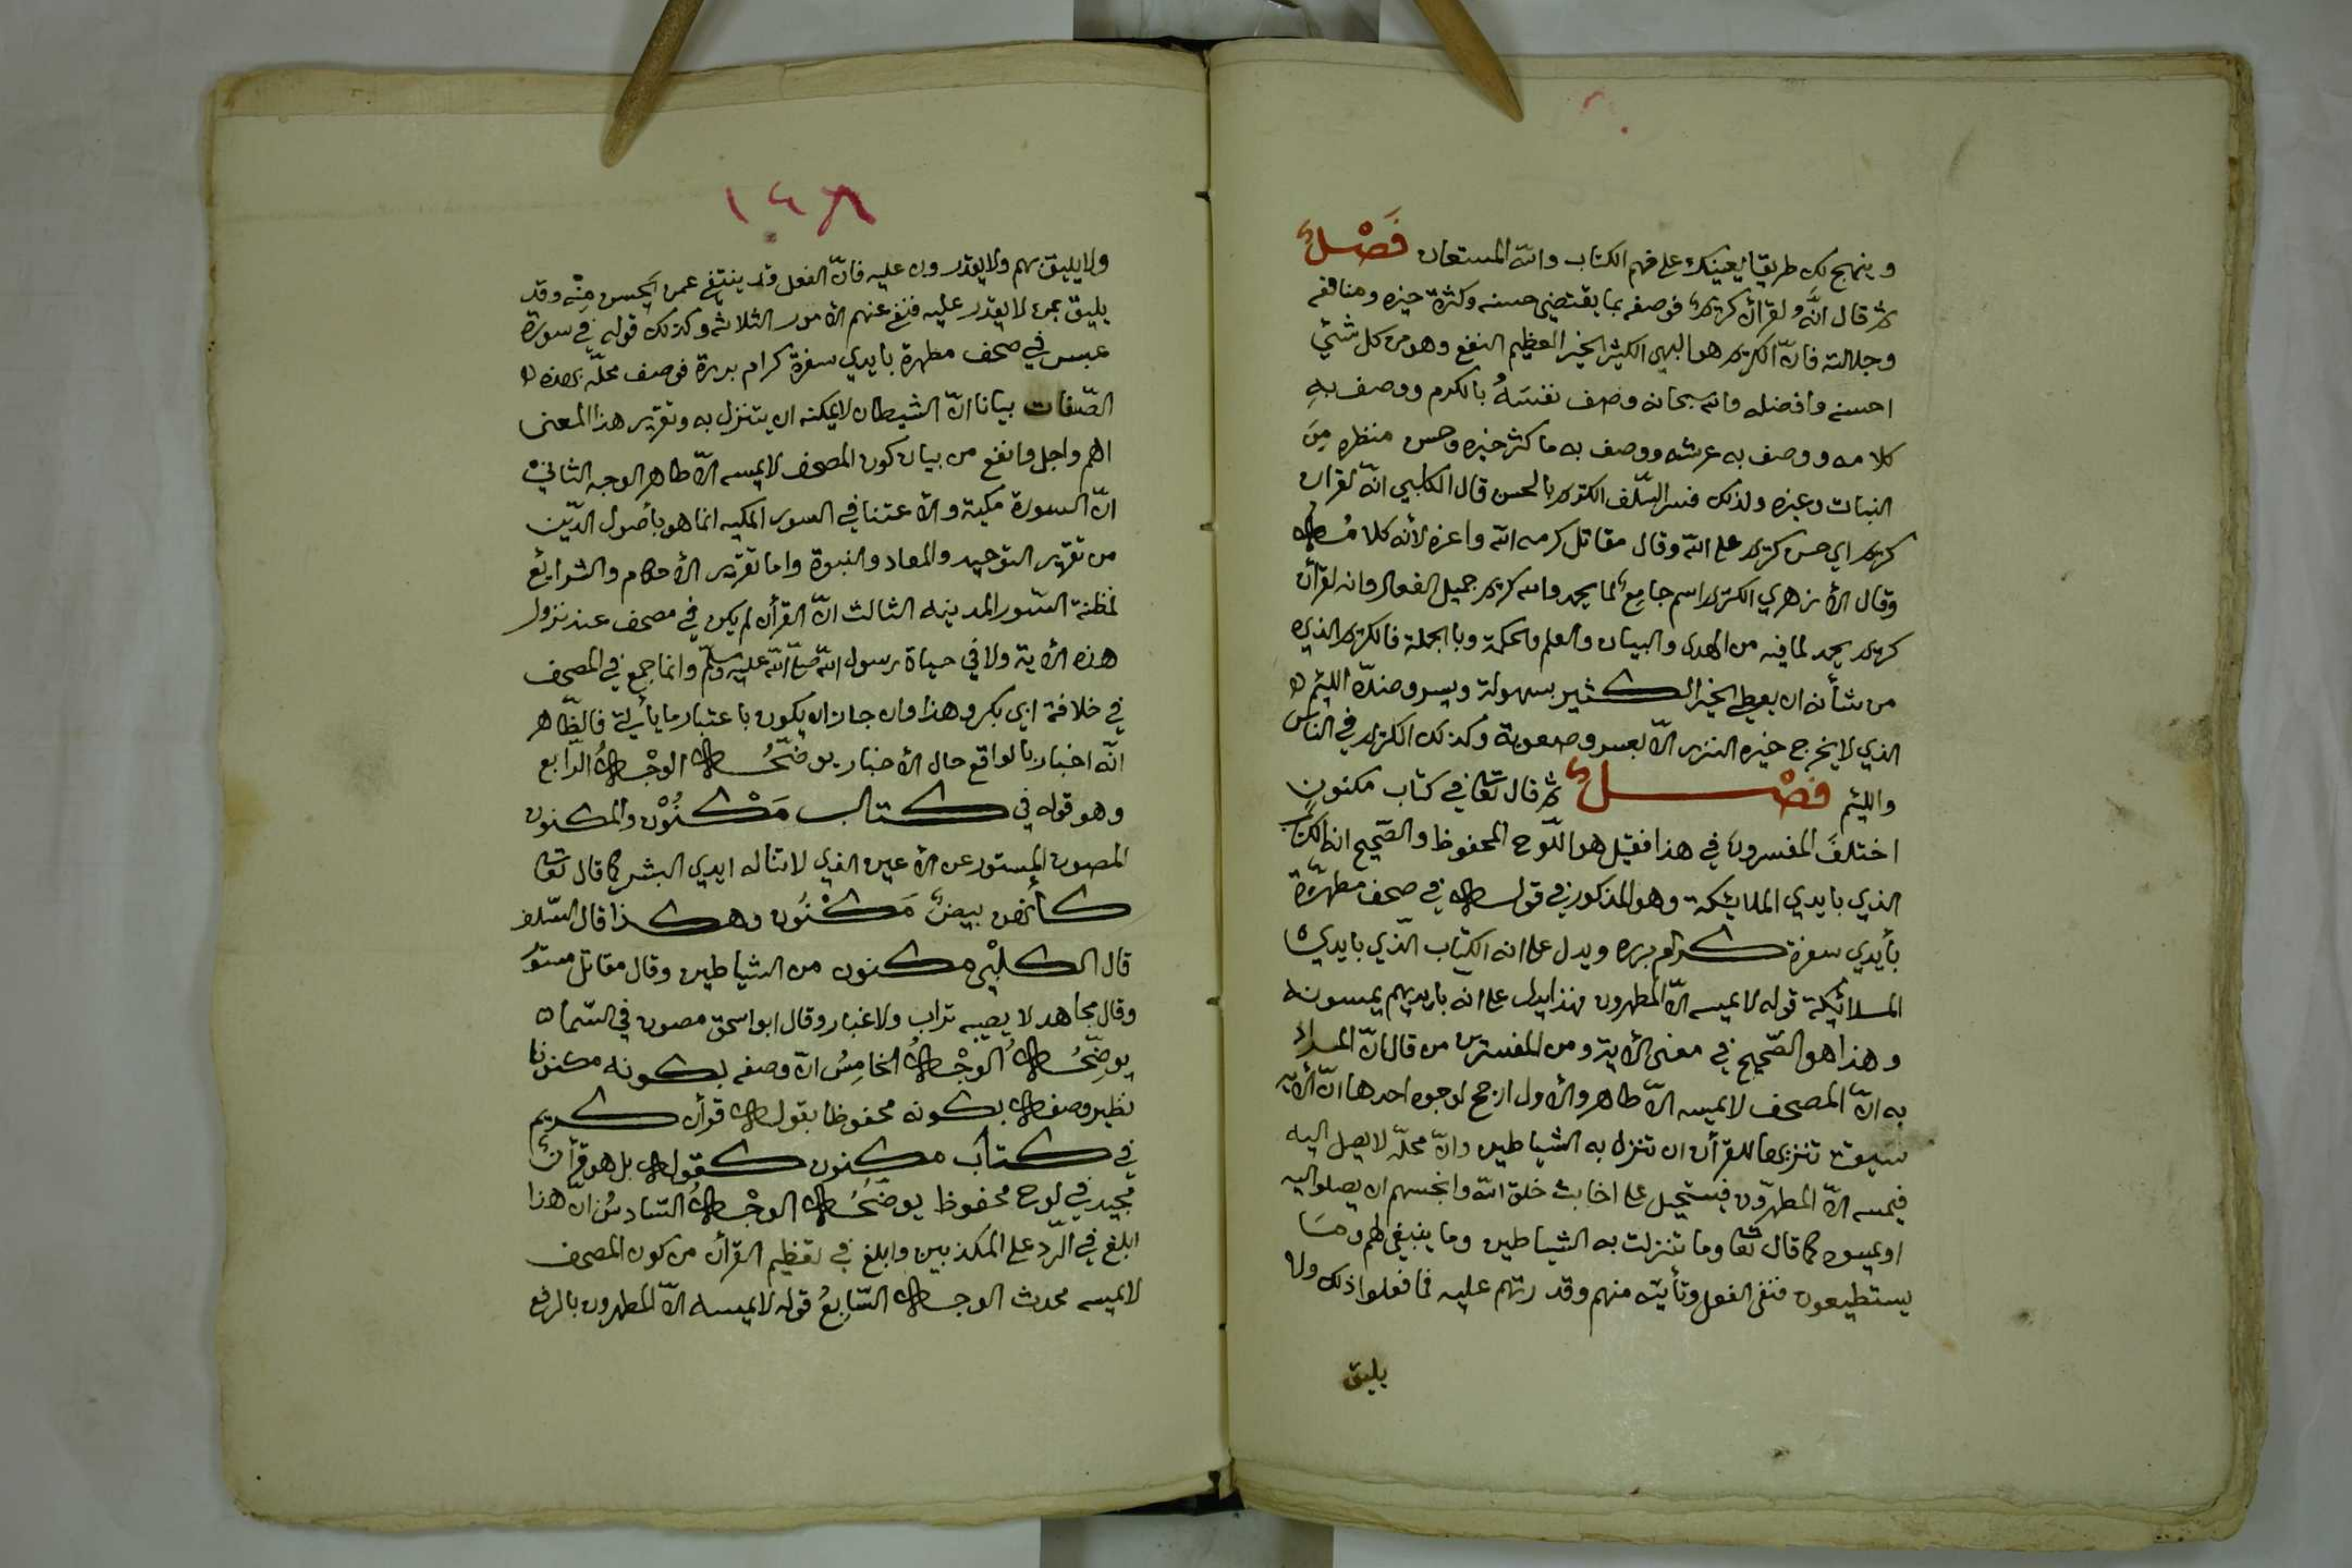 وينهج لك طريقا يعينك على فهم الكتاب والله المستعان فَصْلٌ
ثم قال انَّه لقرآن كريمٌ فوصفه بما يقتضي حسنه وكثرة خيره ومنافعه
وجلالته فانّ الكريم هو البهي الكثير الخير العظيم النفع وهو من كل شئي
احسنه وافضله والله سبحانه وصف نفسَهُ بالكرم ووصف بهِ
كلامه ووصف به عرشه ووصف به ما كثر خيره وحسن منظره مِنَ
النبات وغيره ولذلك فسر السّلف الكريم بالحسن قال الكلبي انّه لقران
كريم اي حسن كريم على الله وقال مقاتل كرمه الله واعزه لأنه كلامُـه
وقال الأزهري الكريم اسم جامعٌ لما يحمد والله كريم جميل الفعال وانه لقرآن
كريم يحمد لما فيه من الهدى والبيان والعلم والحكمة وبالجملة فالكريم الذي
من شأنه ان يعطي الخير الكثير بسهولة ويسر وضدّه اللئيم ه
الذي لا يخرج خيره النزر الّا بعسر وصعوبة وكذلك الكريم في الناس
واللئيم فصْلٌ ثم قال تعا في كتاب مكنونٍ
اختلفَ المفسرون في هذا فقيل هو اللّوح المحفوظ والصّحيح انه الكتاب
الذي بايدي الملائيكة وهو المذكور في قوله في صحف مطهرّة
بأيدي سفرة كرام برره ويدل على انه الكتاب الّذي بايدي ه
المـلائيكة قوله لا يمسه الّا المطهرون فهذا يدل على انه بايديهم يمسونه
وهذا هو الصّحيح في معنى الأية ومن المفسرّين من قال انّ المراد
به انّ المصحف لا يمسه الّا طاهر والأول ارجح لوجوه احدها انّ الأية
سيقت تنزيها للقرأن ان تنزل به الشياطين وانّ محلّه لا يصل اليه
فيمسه الّا المطهرّون فيستحيل على اخابث خلق الله وانجسهم ان يصلو اليه
او يمسوه كما قال تعا وما تنزلت به الشياطين وما ينبغي لهم ومـا
يستطيعون فنفى الفعل وتأتيّه منهم وقدرتهم عليه فما فعلوا ذلك ولا
يليق
١٤٨
ولا يليق بهم ولا يقدرون عليه فانّ الفعل قد ينتفي عمن يحسن مِنْه وقد
يليق بمن لا يقدر عليه فنفي عنهم الأمور الثلاثه وكذلك قوله في سورة
عبس في صحف مطهرة بايدي سفرة كرام بررة فوصف محلّه بهذه ه
الصّفات بيانا انّ الشيطان لا يمكنه ان يتنزل به وتقرير هذا المعنى
اهم واجل وانفع من بيان كون المصحف لا يمسه الّا طاهر الوجه الثاني
انّ السورة مكية والأعتنا في السور المكيه انما هو بأصول الدّين
من تقرير التوحيد والمعاد والنبوة واما تقرير الأحكام والشرايع
فمظنة السّور المدينه الثالث انّ القرأن لم يكن في مصحف عند نزول
هذه الأية ولا في حياة رسول الله صلّى الله عليه وسلّم وانما جمع في المصحف
في خلافة ابي بكر وهذا وان جاز ان يكون باعتبار ما يأتي فالظّاهر
انّه اخبار بالواقع حال الأخبار يوضّحُـه الوجْـهُ الرّابع
وهو قوله في كتاب مَكْنُوْن والمكنون
المصون المستور عن الأعين الذي لا تناله ايدي البشر كما قال تعا
كأنهن بيضٌ مَكْنُون وهكذا قال السّلف
قال الكلبْي مكنون من الشياطين وقال مقاتل مستوُر
وقال مجاهد لا يصيبه تراب ولا غبار وقال ابو اسحق مصون في السّما ه
يوضِّحُـه الوجْـهُ الخامِسُ انّ وصفه بكونه مكنونا
نظير وصفه بكونه محفوظا بقوله قرأن كريم
في كتاب مكنون كقوله بل هو قرأنٌ
مجيد في لوح محفوظ يوضّحُـه الوجْـهُ السّادسُ انّ هذا
ابلغ في الرّد على المكذبين وابلغ في تعظيم القرآن من كون المصحف
لا يمسه محدث الوجـه السّابعُ قوله لا يمسه الّا المطهرون بالرفع